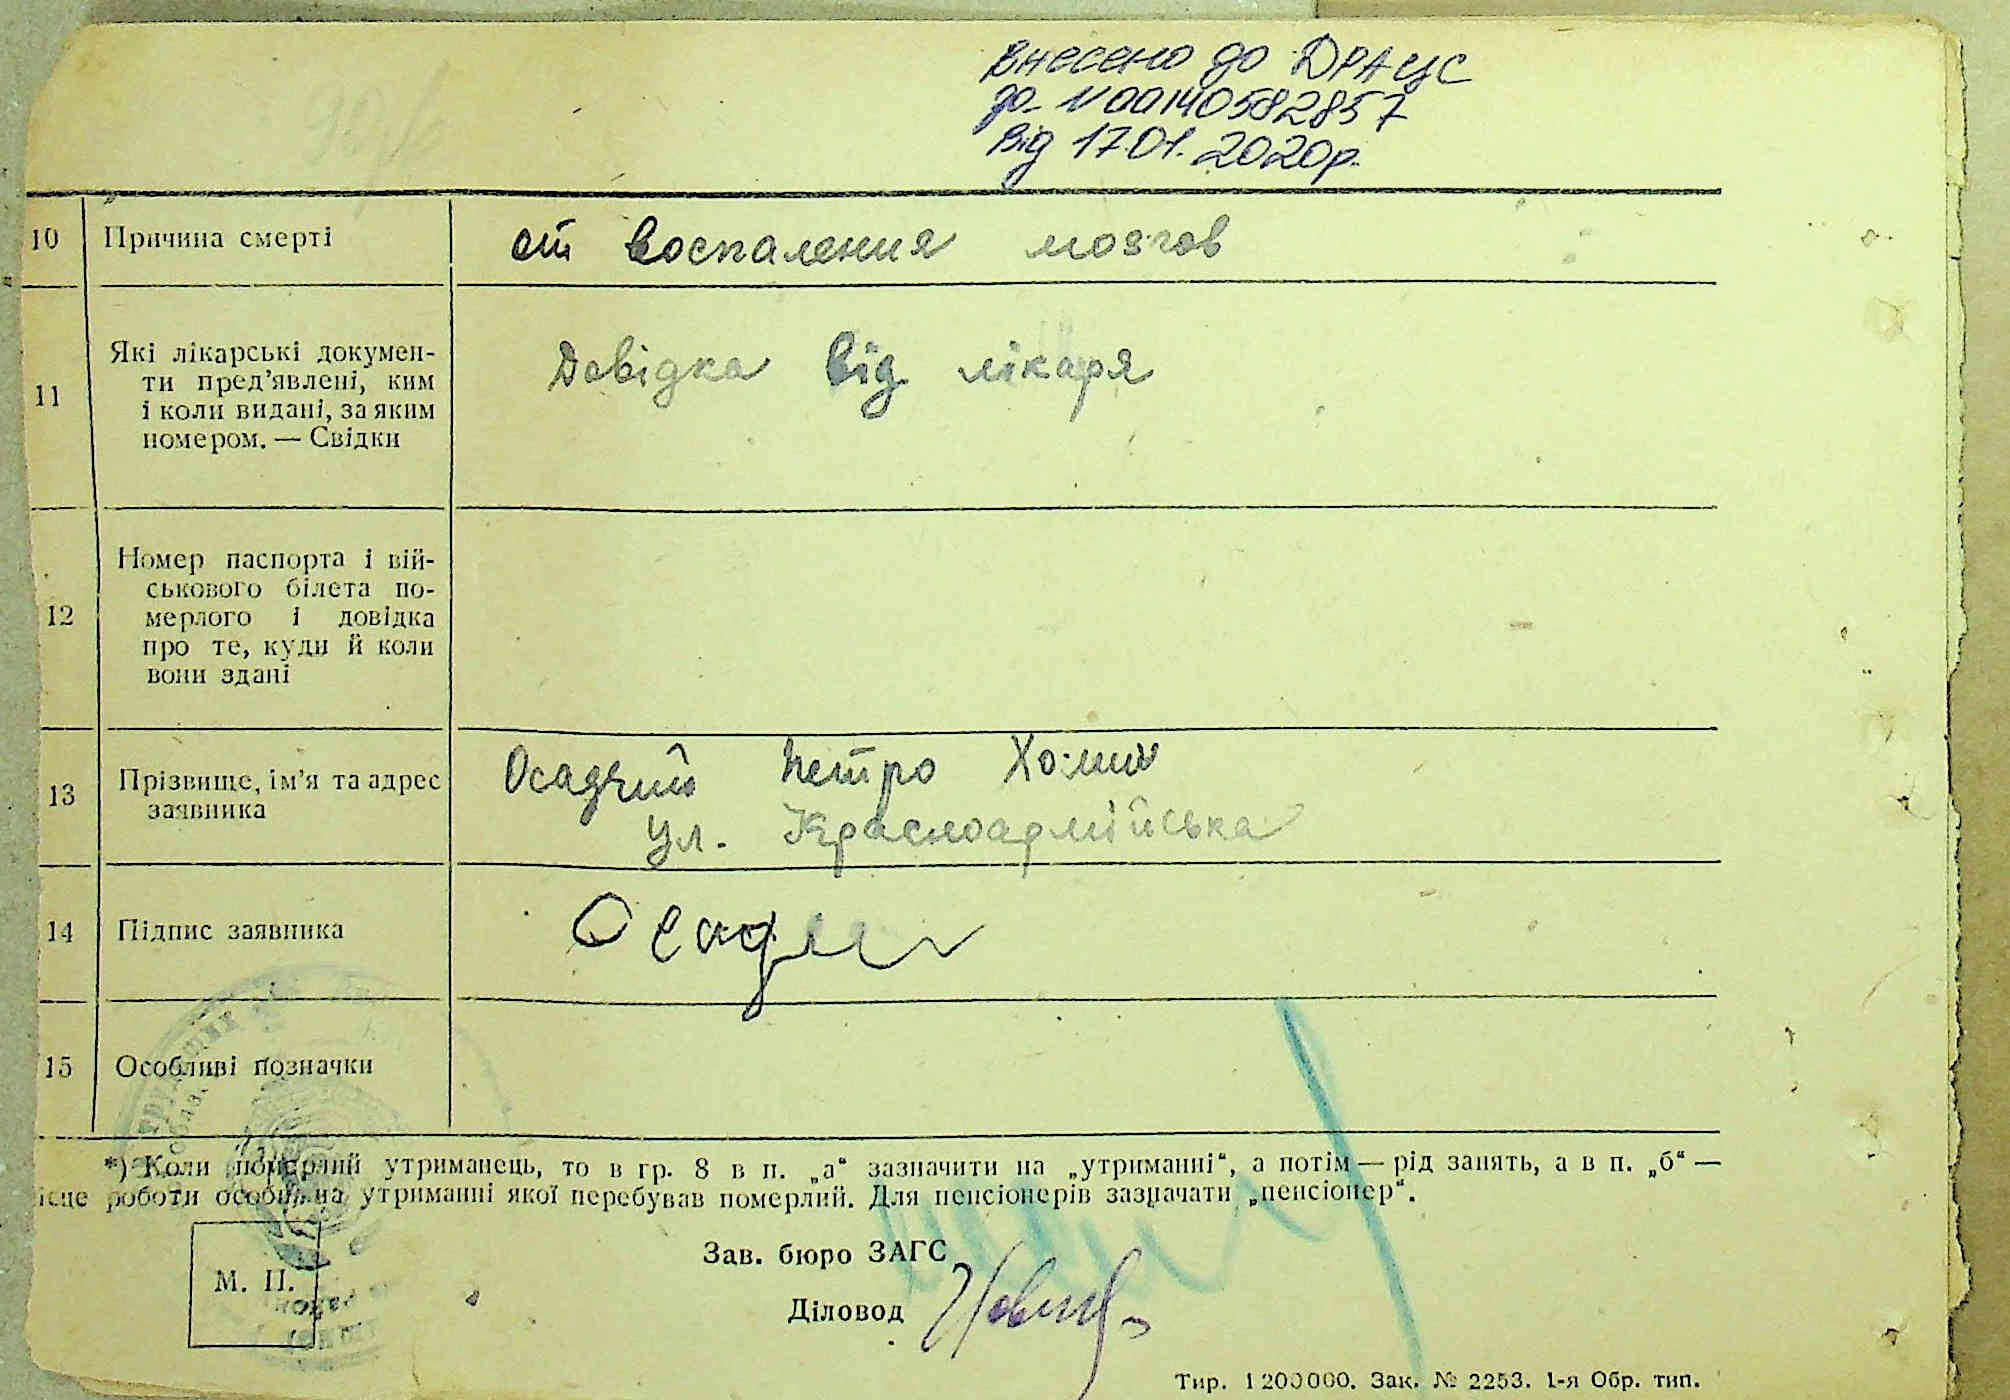 Внесено до ДРАЦС
до № 00140582857
від 17.01.2020р.
10 Причина смерті от воспаления мозгов
11 Які лікарські докумен-
ти пред’явлені, ким
і коли видані, за яким
номером. — Свідки
Довідка від лікаря
12 Номер паспорта і вій-
ськового білета по-
мерлого і довідка
про те, куди й коли
вони здані
13 Прізвище, ім’я та адрес
заявника
Осадчий Петро Хомич
ул. Красноармійська
14 Підпис заявника
15 Особливі позначки
*) Коли померлий утриманець, то в гр. 8 в п. „а“ зазначити на „утриманні“, а потім — рід занять, а в п. „б“ —
ісце роботи особи, на утриманні якої перебував померлий. Для пенсіонерів зазначати „пенсіонер“.
М. П.
Зав. бюро ЗАГС
Діловод
Тир. 1200000. Зак. № 2253. 1-я Обр. тип.